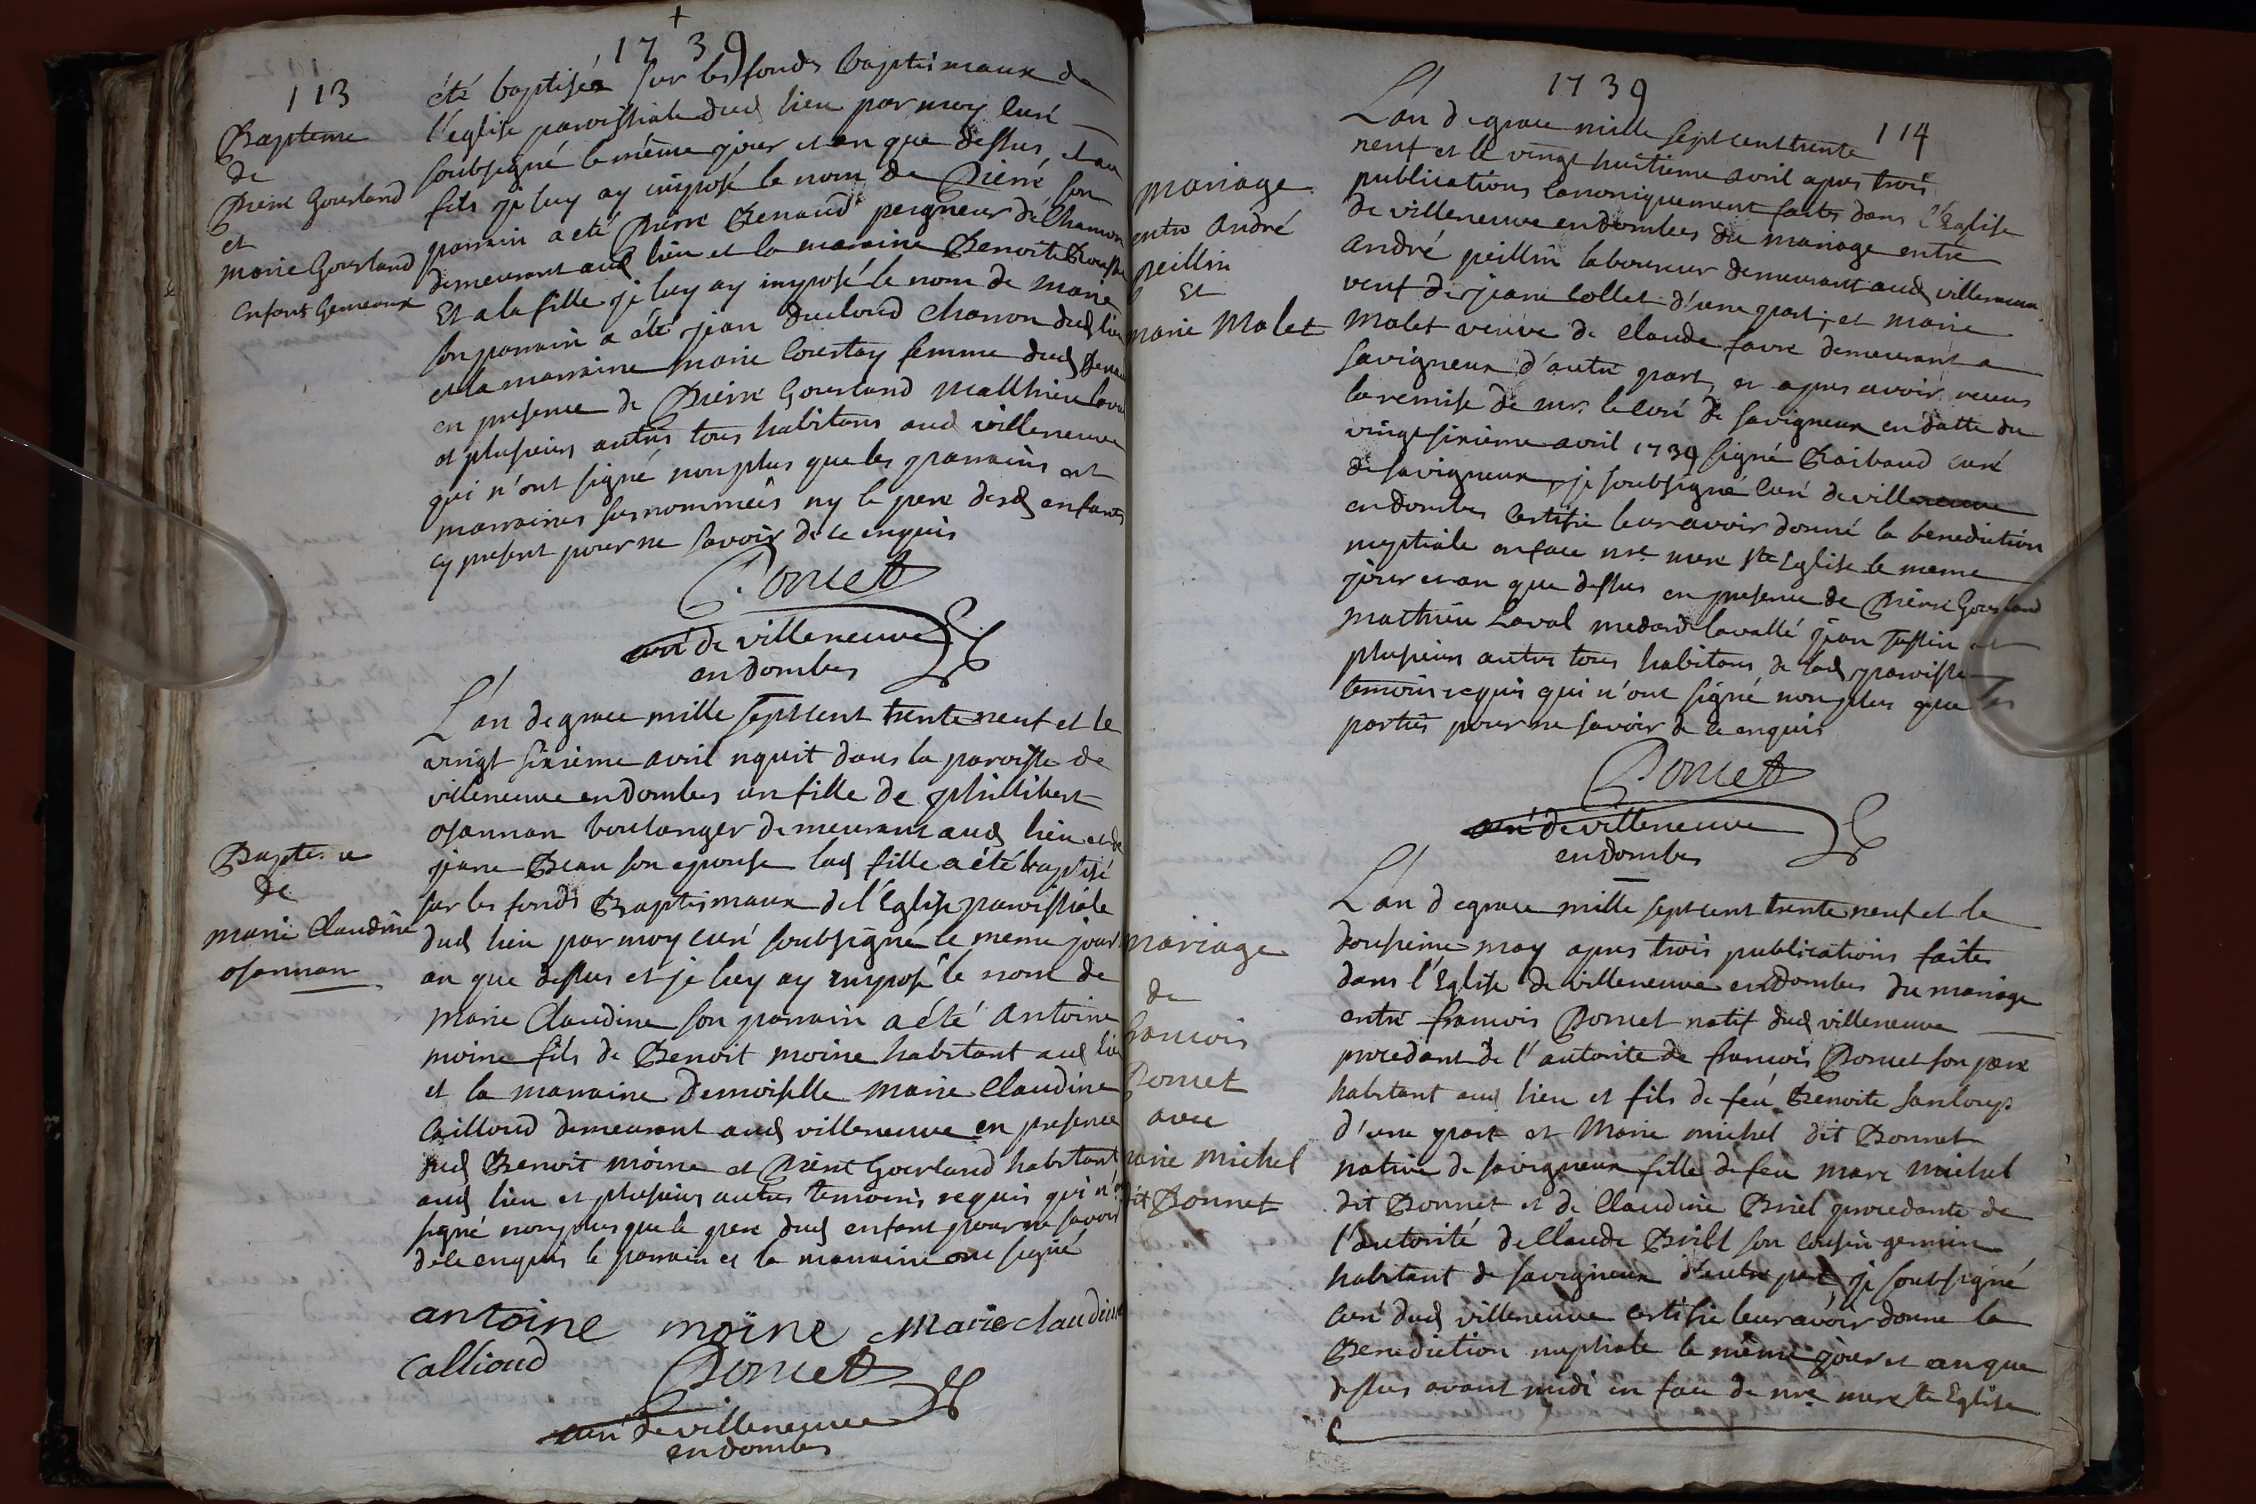 1739
113
Bapteme
de
Pierre Gourland
et
marie Gourland
enfants Gemeaux
été baptisés sur les fonds baptismaux de
l'eglise parroissiale dud lieu par moy curé
soubsigné le même jour et an que dessus, et au
fils je luy ay imposé le nom de Pierre son
parrain a été Pierre Renaud peigneur de Chanvre
demeurant aud lieu et la maraine Benoite
Et a la fille je luy ay imposé le nom de marie
son parrain a été jean Ducloud charron dud lieu
et la marraine marie Courtay femme dud Renaud
en presence de Pierre Gourland Matthieu Laval
et plusieurs autres tous habitans aud villeneuve
qui n'ont signé nonplus que les parrains et
marraines susnommées ny le pere desd enfants
cy present pour ne savoir de ce enquis
Poncet
curé de villeneuve
en dombes
Bapteme
de
marie Claudine
osannan
L'an de grace mille sept cent trente neuf et le
vingt sixieme avril nquit dans la paroisse de
villeneuve en dombes un fille de phillibert
osannan boulanger demeurant aud lieu et de
jeane Beau son epouse lad fille a été baptisé
sur les fonds Baptismaux de l'Eglise paroissiale
dud lieu par moy curé soubsigné le meme jour
an que dessus et je luy ay imposé le nom de
marie Claudine son parrain a été antoine
moine fils de Benoit moine habitant aud lieu
et la marraine Demoiselle marie Claudine
Cailloud demeurant aud villeneuve en presence
dud Benoit moine et Pierre Gourland habitant
aud lieu et plusieurs autres temoins requis qui n'ont
signé nonplus que le pere dud enfant pour ne savoir
de ce enquis le parrain et la marraine ont signé
antoine moine Marie claudine
callioud
Poncet
curé de villeneuve
en dombes
1739
114
mariage
entre andré
peillin
Et
marie Malet
L'an de grace mille sept cent trente
neuf et le vingt huitieme avril apres trois
publications canoniquement faites dans l'Eglise
de villeneuve en dombes du mariage entre
andré peillin laboureur demeurant aud villeneuve
veuf de jeane Collet d'une part, et marie
Malet veuve de claude favre demeurant a
savigneux d'autre part, et apres avoir receus
la remise de mr. le curé de savigneux en datte du
vingt sixieme avril 1739 signé Raibaud curé
de savigneux, je soubsigné curé de villeneuve
en dombes Certifie leur avoir donné la benediction
nuptiale en face nre mere ste Eglise le meme
jour et an que dessus en presence de Pierre Gourland
mathieu Laval medard lavallé jean et
plusieurs autres tous habitans de lad paroisse
temoins requis qui n'ont signé nonplus que les
parties pour ne savoir de ce enquis
Poncet
curé de villeneuve
en dombes
mariage
de
francois
Poncet
avec
marie michel
dit Bonnet
L'an de grace mille sept cent trente neuf et le
dousieme may apres trois publications faites
dans l'Eglise de villeneuve en dombes du mariage
entre francois Poncet natif dud villeneuve
procedant de l'autorite de francois Poncet son pere
habitant aud lieu et fils de feu Benoite sanloup
d'une part et Marie michel dit Bonnet
native de savigneux fille de feu marc michel
dit Bonnet et de Claudine Briel procedante de
l'autorité de Claude son cousin germain
habitant de savigneux d'autre part, je soubsigné
curé dud villeneuve certifie leur avoir donné la
Benediction nuptiale le même jour et an que
dessus avant midi en face de nre mere ste Eglise